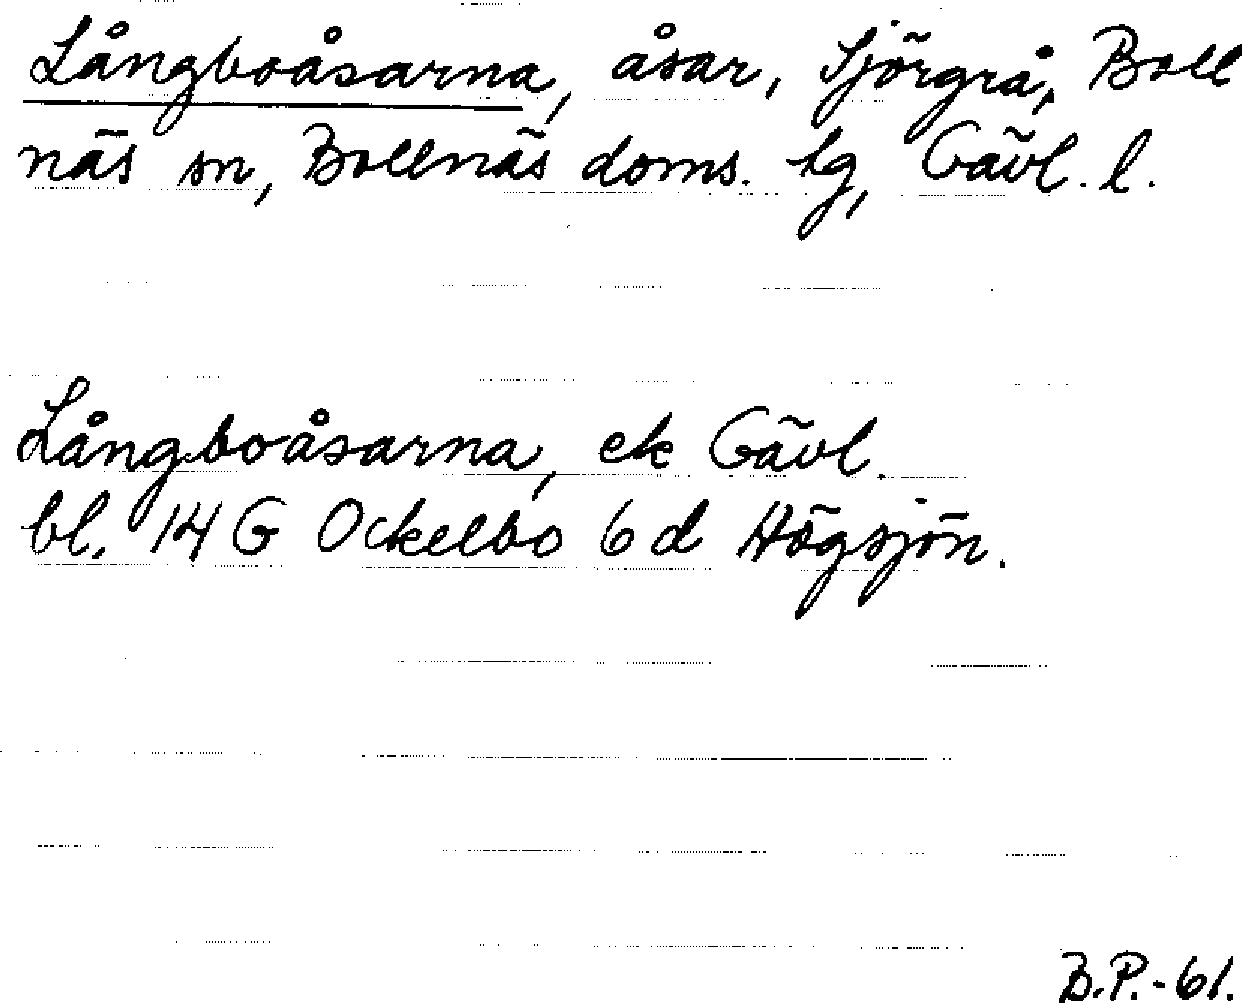 Långboåsarna, åsar, Sjörgrå, Boll
näs sn, Bollnäs doms. tg, Gävl. l.
Långboåsarna, ek Gävl.
bl. 14 G Ockelbo 6 d Högsjön.
B.P.-61.